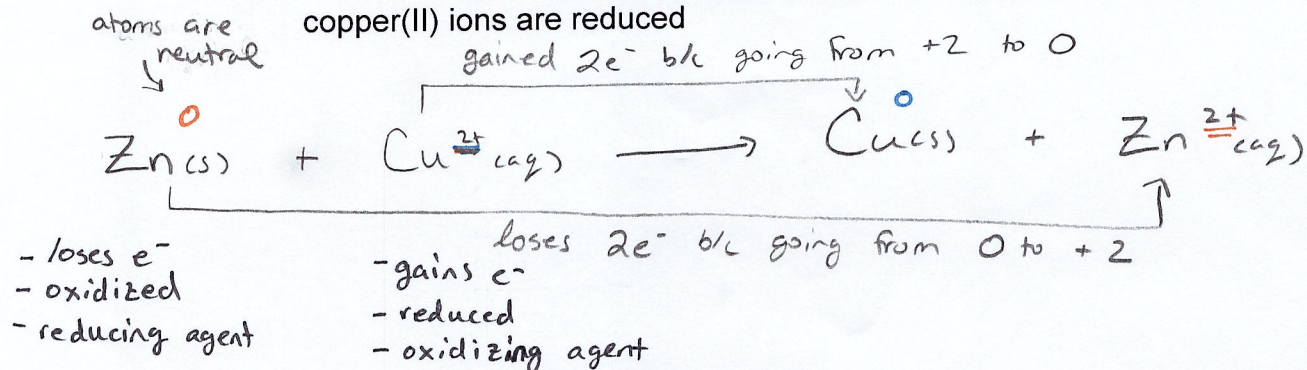 atoms are
neutral
copper(II) ions are reduced
gained 2e⁻ b/c going from +2 to 0
0 0
Zn(s) + Cu²⁺(aq) → Cu(s) + Zn²⁺(aq)
loses 2e⁻ b/c going from 0 to +2
- loses e⁻
- oxidized
- reducing agent
- gains e⁻
- reduced
- oxidizing agent